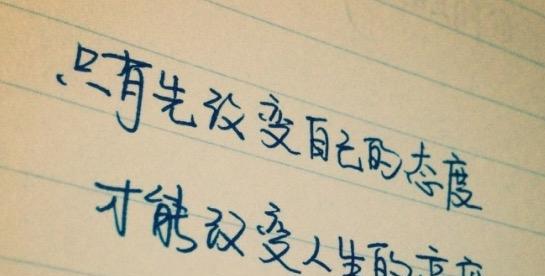 只有先改变自己的态度
才能改变人生的高度